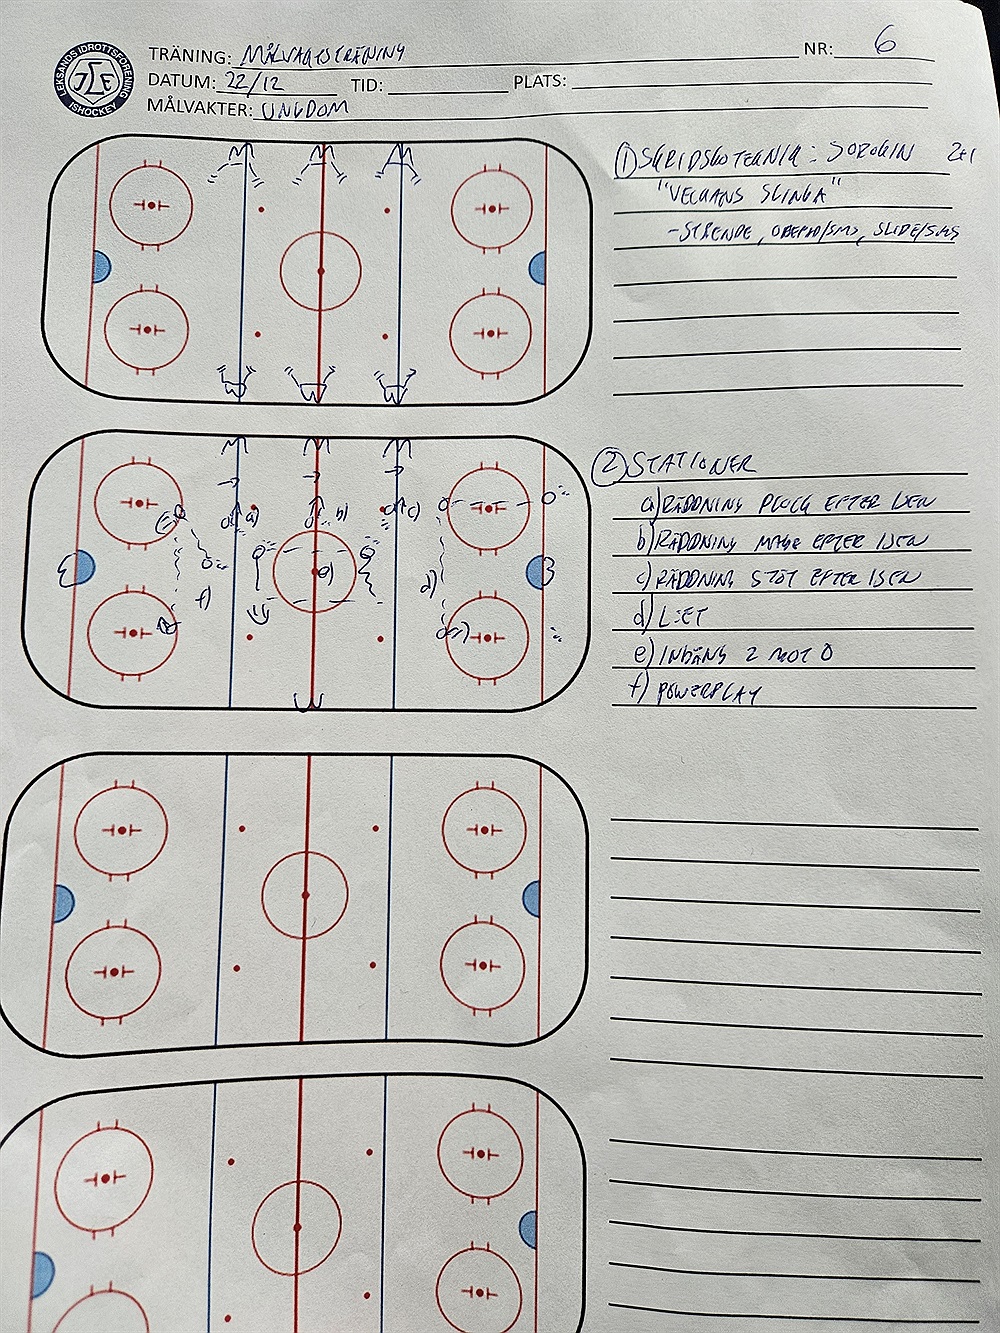 LEKSANDS IDROTTSFÖRENING
ISHOCKEY
TRÄNING: MÅLVAKTSTRÄNING
NR: 6
DATUM: 22/12 TID: PLATS:
MÅLVAKTER: UNGDOM
① SKRIDSKOTEKNIK: SOROKIN 2+1
"VECKANS SLINGA"
- STÅENDE, SLIDE/SMS
② STATIONER
a) RÄDDNING PLOCK EFTER ISEN
b) RÄDDNING MAGE EFTER ISEN
c) RÄDDNING STÖT EFTER ISEN
d) L:ET
e) INGÅNG 2 MOT 0
f) POWERPLAY
a) b) c)
e) d)
f)